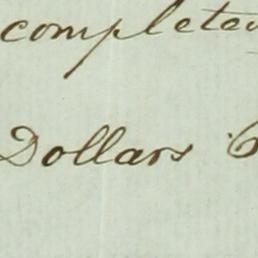 completed
Dollars